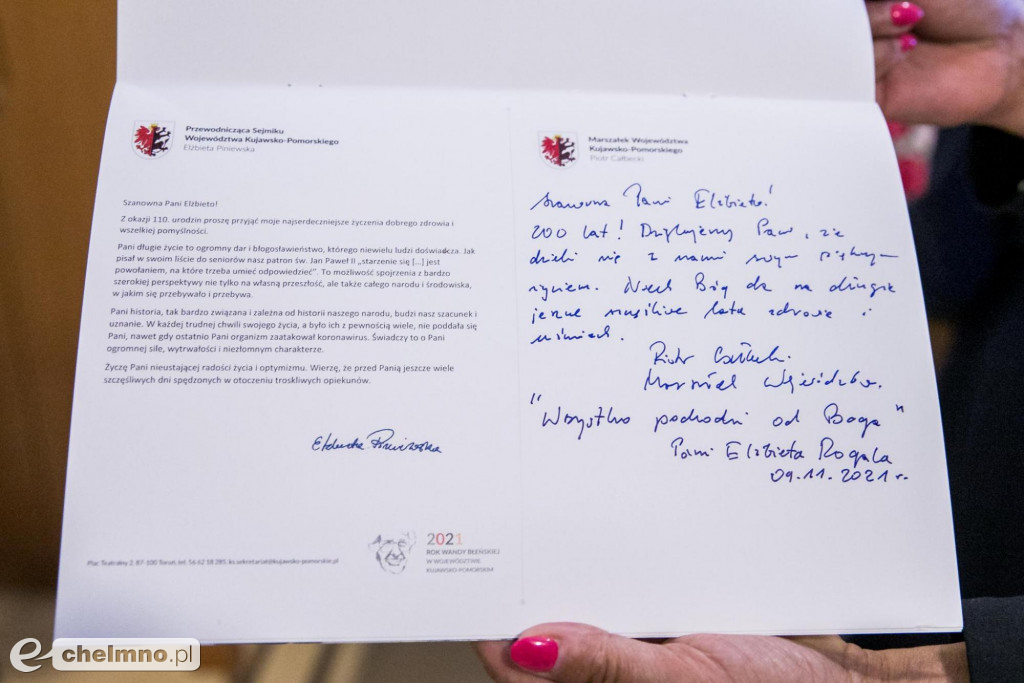 Przewodnicząca Sejmiku
Województwa Kujawsko-Pomorskiego
Elżbieta Piniewska
Szanowna Pani Elżbieto!
Z okazji 110. urodzin proszę przyjąć moje najserdeczniejsze życzenia dobrego zdrowia i
wszelkiej pomyślności.
Pani długie życie to ogromny dar i błogosławieństwo, którego niewielu ludzi doświadcza. Jak
pisał w swoim liście do seniorów nasz patron św. Jan Paweł II „starzenie się [...] jest
powołaniem, na które trzeba umieć odpowiedzieć”. To możliwość spojrzenia z bardzo
szerokiej perspektywy nie tylko na własną przeszłość, ale także całego narodu i środowiska,
w jakim się przebywało i przebywa.
Pani historia, tak bardzo związana i zależna od historii naszego narodu, budzi nasz szacunek i
uznanie. W każdej trudnej chwili swojego życia, a było ich z pewnością wiele, nie poddała się
Pani, nawet gdy ostatnio Pani organizm zaatakował koronawirus. Świadczy to o Pani
ogromnej sile, wytrwałości i niezłomnym charakterze.
Życzę Pani nieustającej radości życia i optymizmu. Wierzę, że przed Panią jeszcze wiele
szczęśliwych dni spędzonych w otoczeniu troskliwych opiekunów.
Elżbieta Piniewska
Plac Teatralny 2, 87-100 Toruń, tel. 56 62 18 285, ks.sekretariat@kujawsko-pomorskie.pl
2021
ROK WANDY BŁEŃSKIEJ
W WOJEWÓDZTWIE
KUJAWSKO-POMORSKIM
Marszałek Województwa
Kujawsko-Pomorskiego
Piotr Całbecki
Szanowna Pani Elżbieto!
200 lat! Dziękujemy Pani, że
dzieli się z nami swym pięknym
życiem. Niech Bóg da na długie
jeszcze lata zdrowie i
uśmiech.
Piotr Całbecki.
Marszałek Województwa.
"Wszystko pochodzi od Boga"
Pani Elżbieta Rogala
09.11.2021 r.
e chelmno.pl